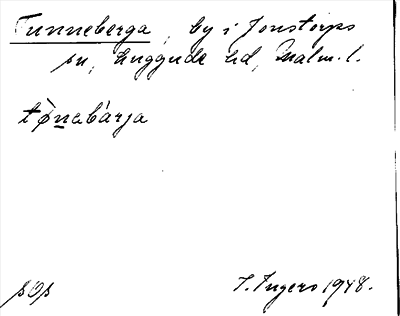 Tunneberga, by i Jonstorps
sn, Luggude hd, Malm. l.
tø̀nabàrja
sOs
I. Ingers 1948.